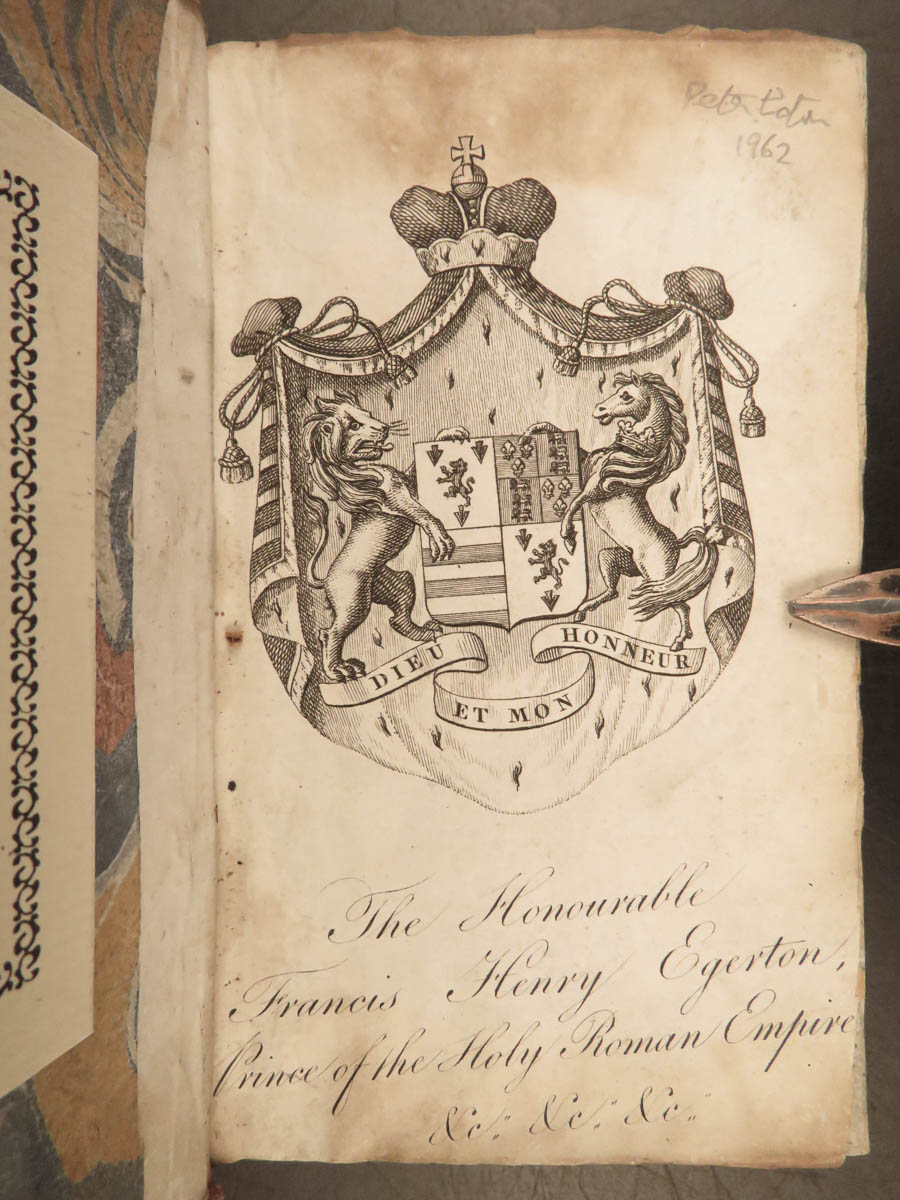 1962
DIEU
ET MON
HONNEUR
The Honourable
Francis Henry Egerton,
Prince of the Holy Roman Empire
&c." &c." &c."